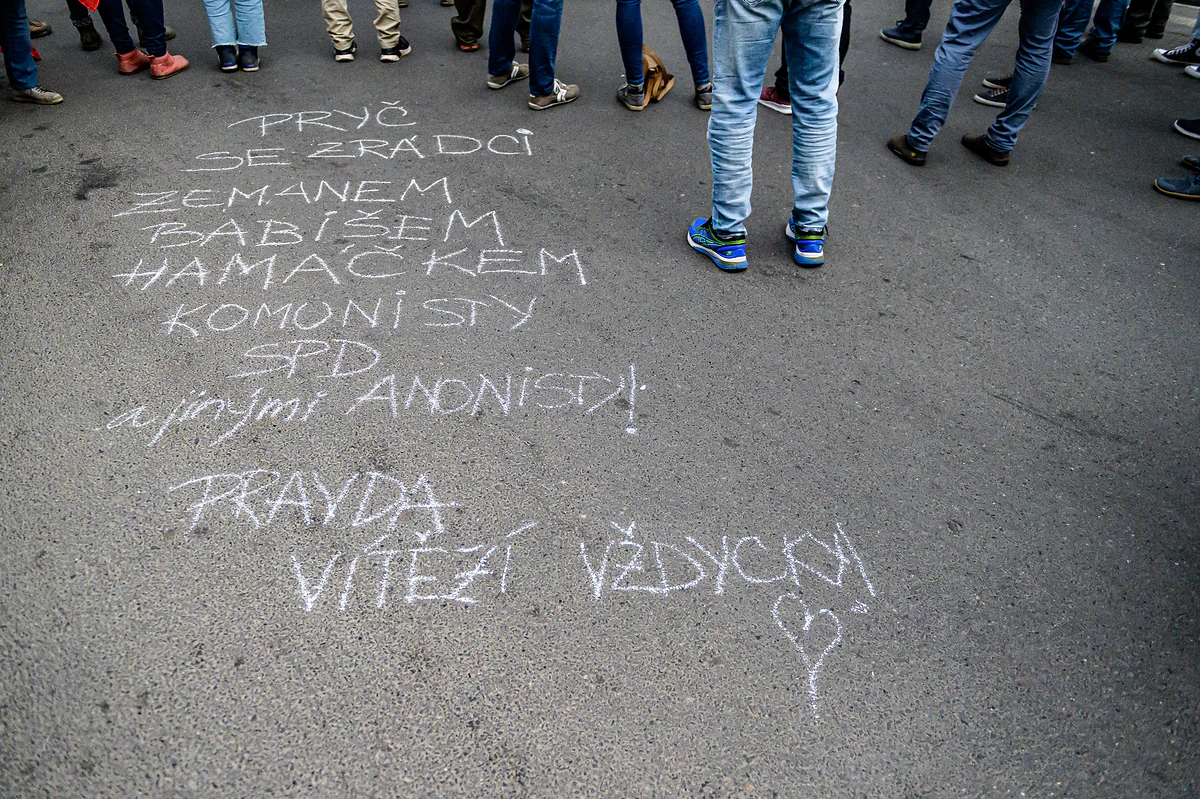 PRYČ
SE ZRÁDCI
ZEMANEM
BABIŠEM
HAMÁČKEM
KOMUNISTY
SPD
a jinými ANONISTY!
PRAVDA
VÍTĚZÍ VŽDYCKY!